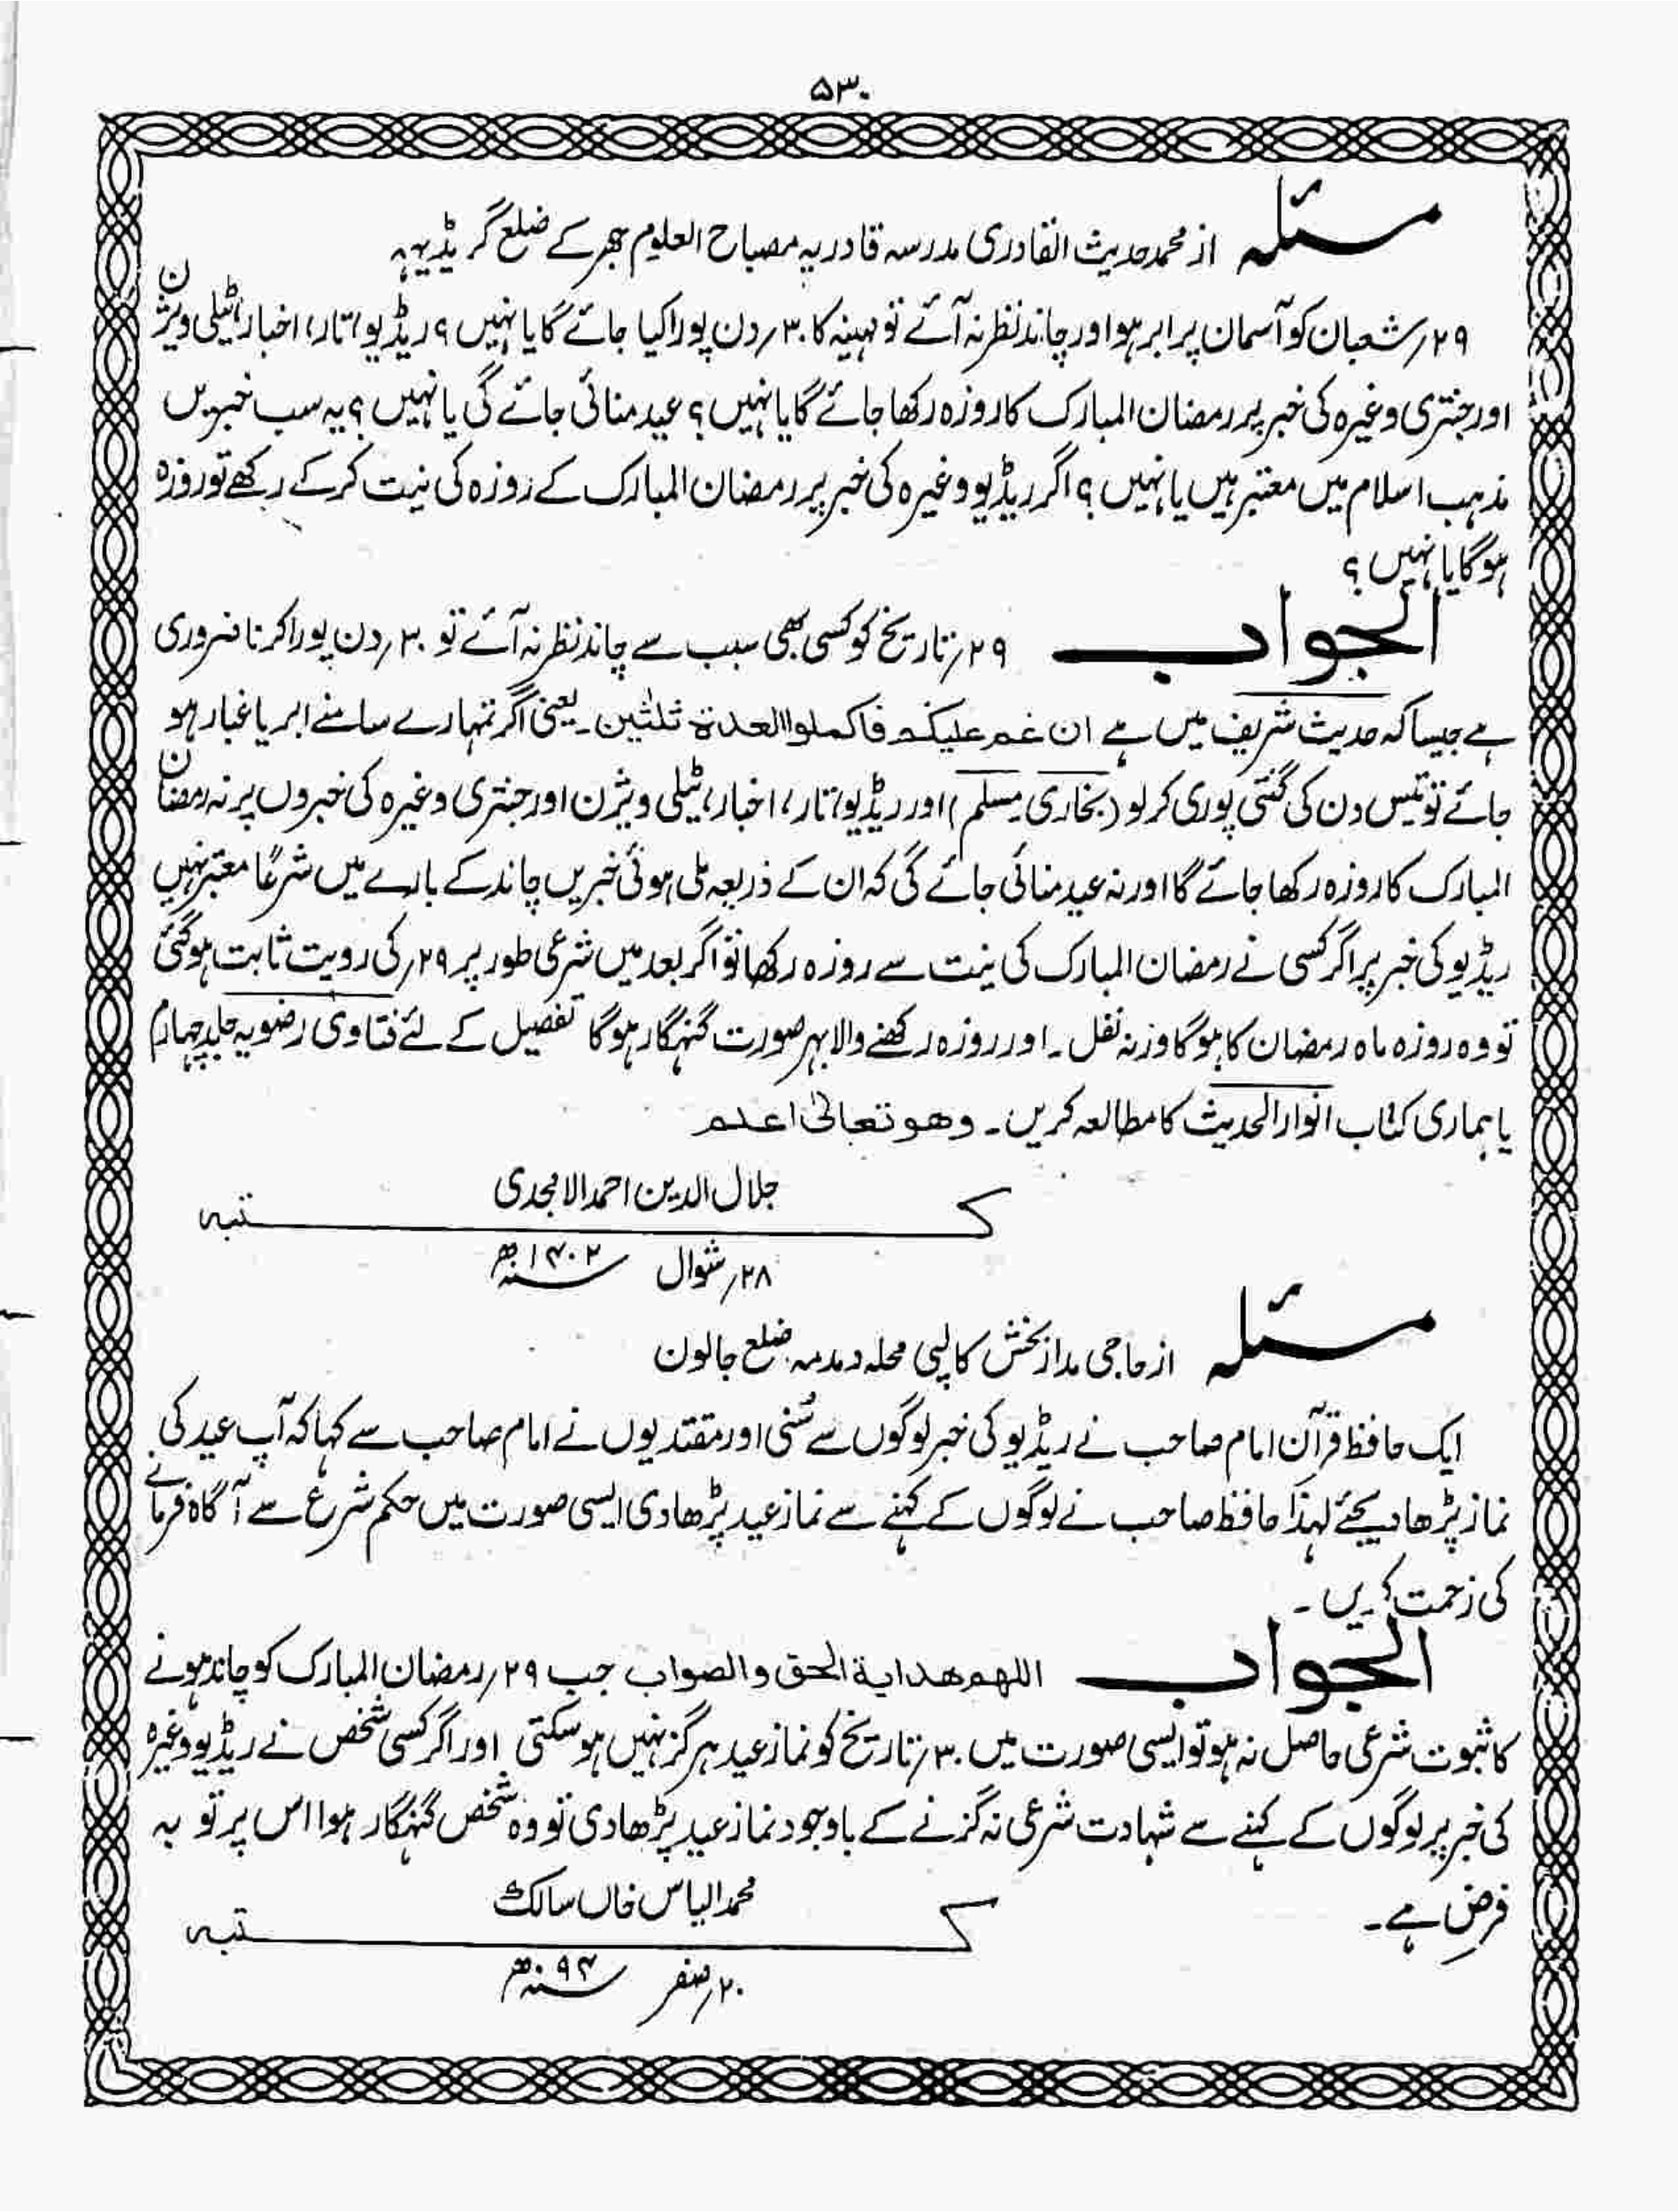 ۵۳۰
مسئلہ از محمد حدیث القادری مدرسہ قادریہ مصباح العلوم کے ضلع گریڈیہہ
۲۹؍ شعبان کو آسمان پر ابر ہو اور چاند نظر نہ آئے تو مہینہ کا ۳۰؍ دن پورا کیا جائے گا یا نہیں ؟ ریڈیو، تار، اخبار، ٹیلی ویژن
اور جنتری وغیرہ کی خبر پر رمضان المبارک کا روزہ رکھا جائے گا یا نہیں ؟ عید منائی جائے گی یا نہیں ؟ یہ سب خبریں
مذہب اسلام میں معتبر ہیں یا نہیں ؟ اگر ریڈیو وغیرہ کی خبر پر رمضان المبارک کے روزہ کی نیت کرکے رکھے تو روزہ
ہوگا یا نہیں ؟
الجواب ۲۹؍ تاریخ کو کسی بھی سبب سے چاند نظر نہ آئے تو ۳۰؍ دن پورا کرنا ضروری
ہے جیسا کہ حدیث شریف میں ہے ان غم علیکم فاکملوا العدۃ ثلٰثین۔ یعنی اگر تمہارے سامنے ابر یا غبار ہو
جائے تو تیس دن کی گنتی پوری کرلو (بخاری مسلم) اور ریڈیو، تار، اخبار، ٹیلی ویژن اور جنتری وغیرہ کی خبروں پر نہ رمضان
المبارک کا روزہ رکھا جائے گا اور نہ عید منائی جائے گی کہ ان کے ذریعہ ملی ہوئی خبریں چاند کے بارے میں شرعًا معتبر نہیں
ریڈیو کی خبر پر اگر کسی نے رمضان المبارک کی نیت سے روزہ رکھا تو اگر بعد میں شرعی طور پر ۲۹؍ کی رویت ثابت ہوگئی
تو وہ روزہ ماہ رمضان کا ہوگا ورنہ نفل۔ اور روزہ رکھنے والا بہر صورت گنہگار ہوگا تفصیل کے لئے فتاوی رضویہ جلد چہارم
یا ہماری کتاب انوار الحدیث کا مطالعہ کریں۔ وھو تعالیٰ اعلم
جلال الدین احمد الامجدی
کتبہ
۲۸؍ شوال ۱۴۰۲ھ
مسئلہ از حاجی مدار بخش کالپی محلہ دمدمہ ضلع جالون
ایک حافظ قرآن امام صاحب نے ریڈیو کی خبر لوگوں سے سُنی اور مقتدیوں نے امام صاحب سے کہا کہ آپ عید کی
نماز پڑھا دیجئے لہذا حافظ صاحب نے لوگوں کے کہنے سے نماز عید پڑھا دی ایسی صورت میں حکم شرع سے آگاہ فرمانے
کی زحمت کریں۔
الجواب اللھم ھدایۃ الحق والصواب جب ۲۹؍ رمضان المبارک کو چاند ہونے
کا ثبوت شرعی حاصل نہ ہو تو ایسی صورت میں ۳۰؍ تاریخ کو نماز عید ہرگز نہیں ہو سکتی اور اگر کسی شخص نے ریڈیو وغیرہ
کی خبر پر لوگوں کے کہنے سے شہادت شرعی نہ گزنے کے باوجود نماز عید پڑھا دی تو وہ شخص گنہگار ہوا اس پر توبہ
فرض ہے۔
محمد الیاس خاں سالک
کتبہ
۲۰؍ صفر ۹۴ھ